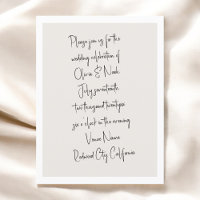 Please join us for the
wedding celebration of
Olivia & Noah
July seventeenth
two thousand twentysix
six o'clock in the evening
Venue Name
Redwood City, California